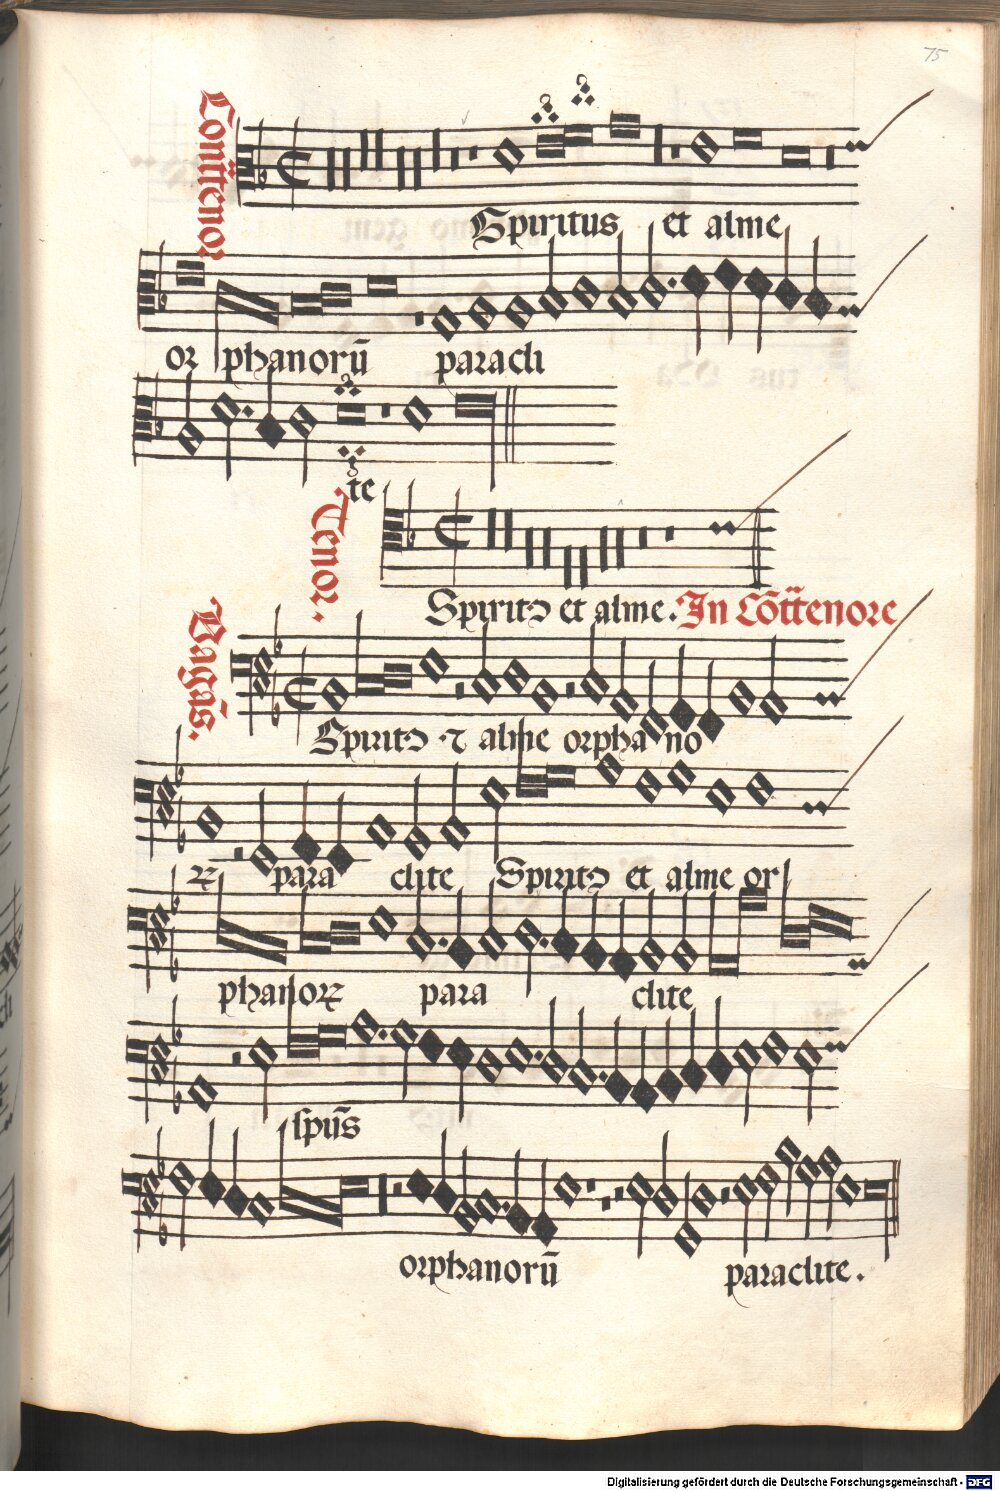 75
Contratenor
Spiritus et alme
or phanorū paracli
te
Tenor.
Spiritꝰ et alme. In Cōtratenore
Vagās.
Spiritꝰ ⁊ alme orpha no
ꝝ para clite Spiritꝰ et alme or
phanorꝝ para clite
spūs
orphanorū paraclite.
Digitalisierung gefördert durch die Deutsche Forschungsgemeinschaft - DFG